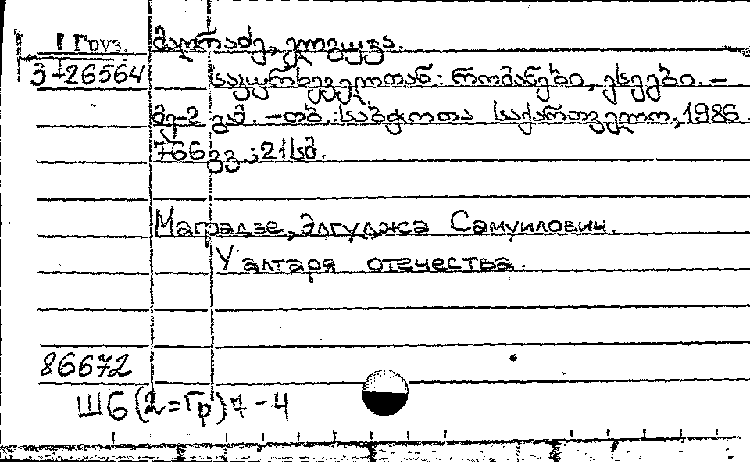 1 Груз.
მაღრაძე, ელგუჯა.
3-26564
საკურთხეველთან: რომანები, ესეები. –
მე-2 გამ. – თბ.: საბჭოთა საქართველო, 1986.
766 გვ.; 21 სმ.
Маградзе, Элгуджа Самуилович.
У алтаря отечества.
86672
Ш6(2=Гр)7-4